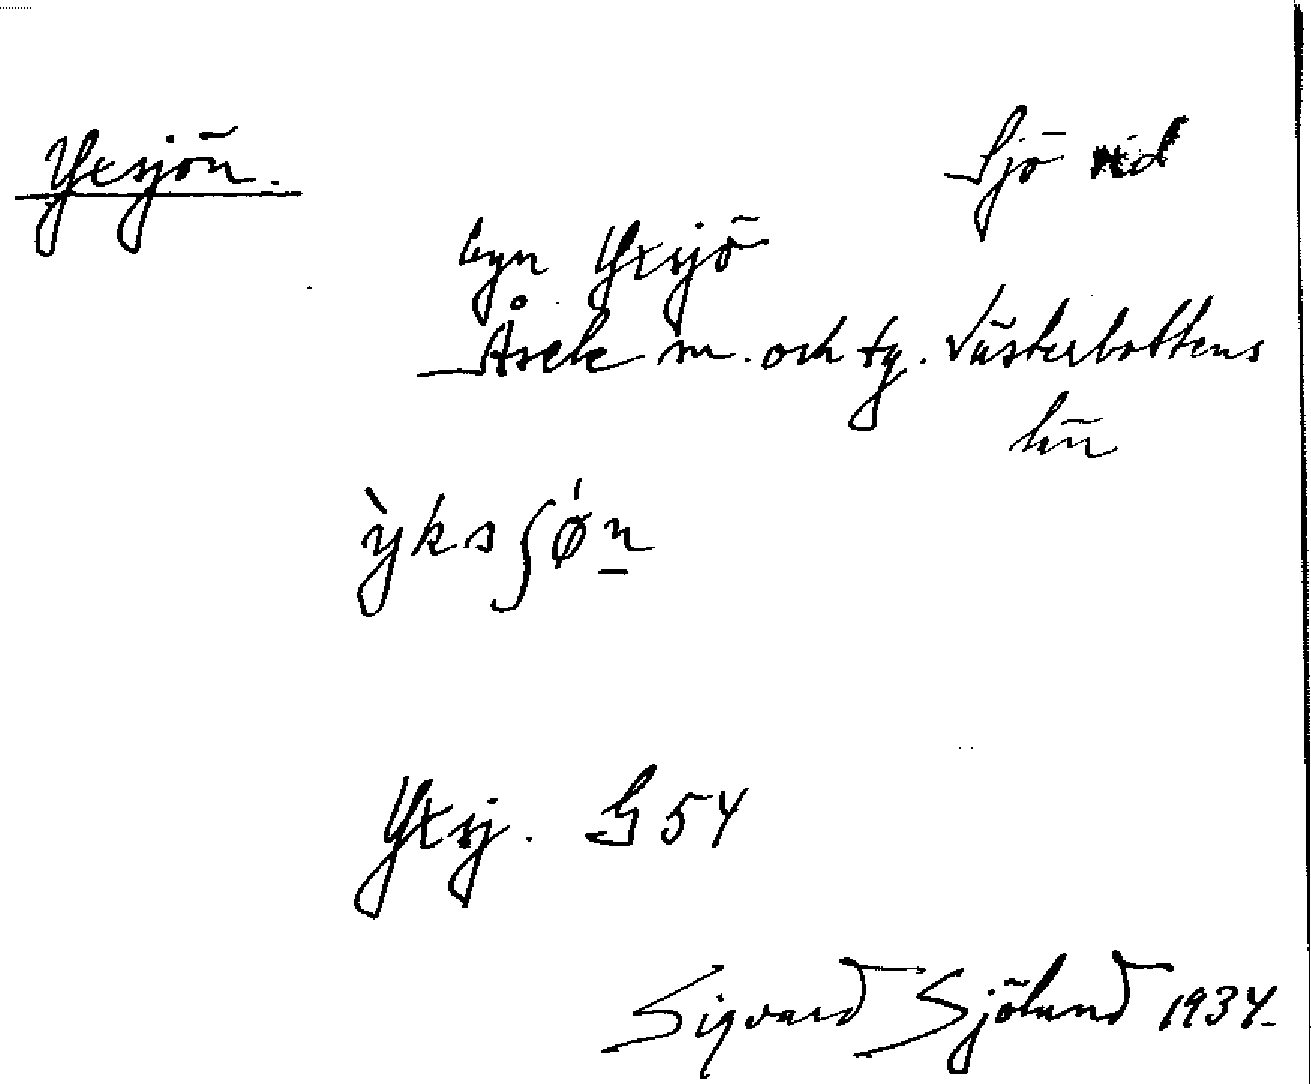 Yxsjön.
Sjö vid
byn Yxsjö
Åsele sn. och tg. Västerbottens
län
ỳksʃǿn̲
Yxsj. G 54
Sigvard Sjölund 1934.